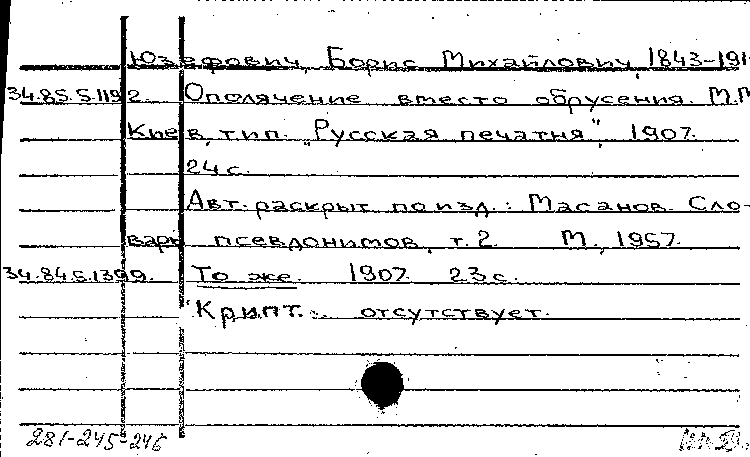 Юзефович, Борис Михайлович, 1843-191
34.85.5.1192. Ополячение вместо обрусения. М.М
Киев, тип. "Русская печатня", 1907.
24 с.
Авт. раскрыт по изд.: Масанов. Сло-
варь псевдонимов, т. 2. М., 1957.
34.84.5.1399. То же. 1907. 23 с.
Крипт. отсутствует.
281-245-246